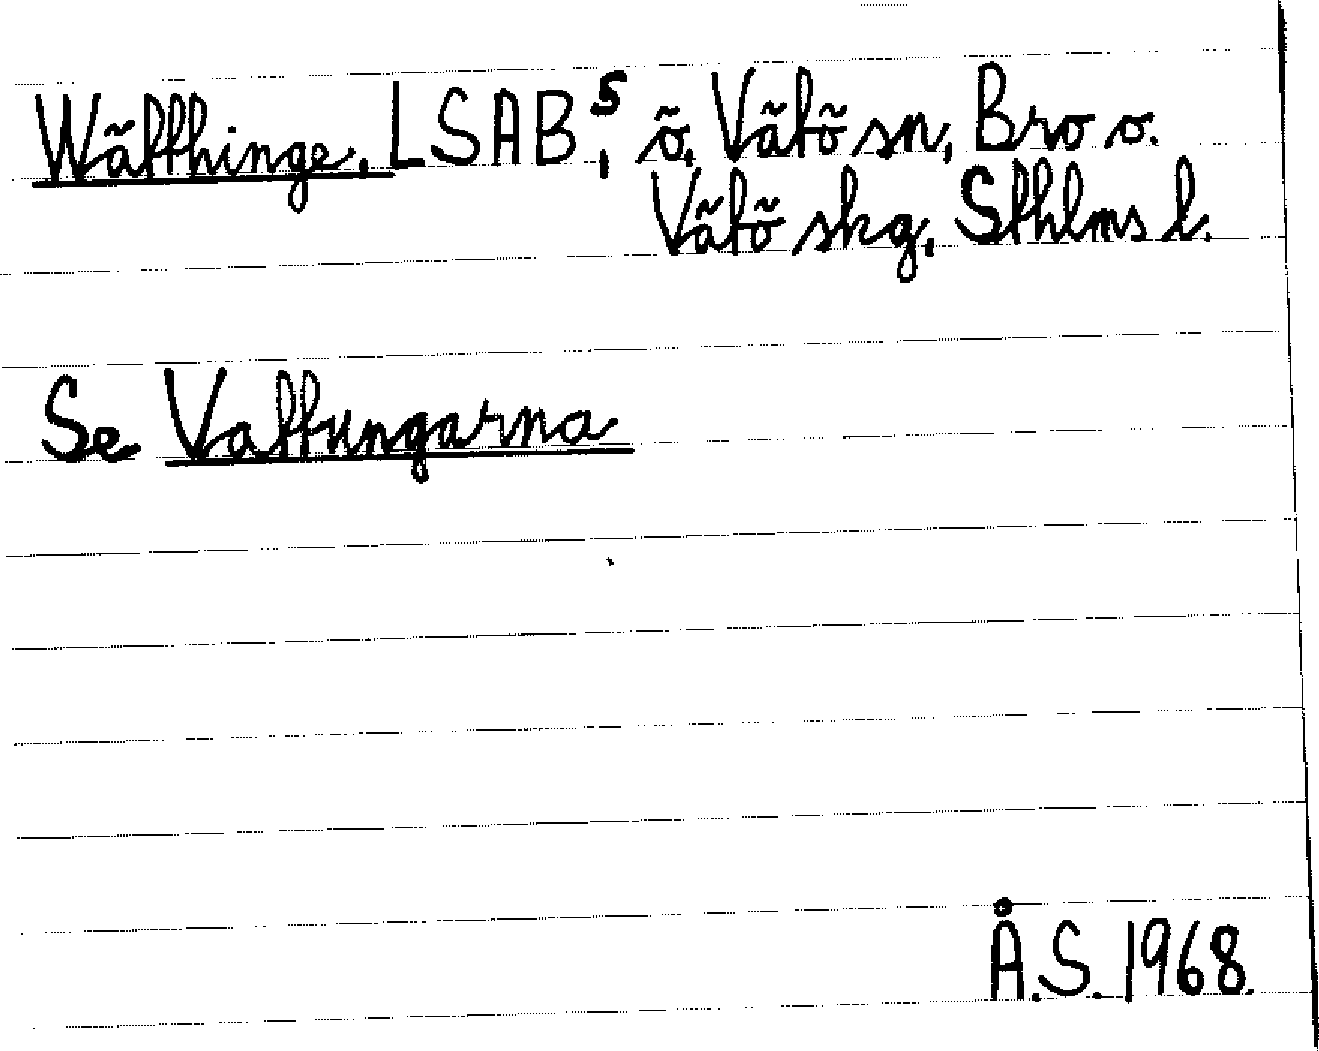 Wätthinge. LSABˢ, ö, Vätö sn, Bro o.
Vätö skg, Sthlms l.
Se Vattungarna
Å.S. 1968.